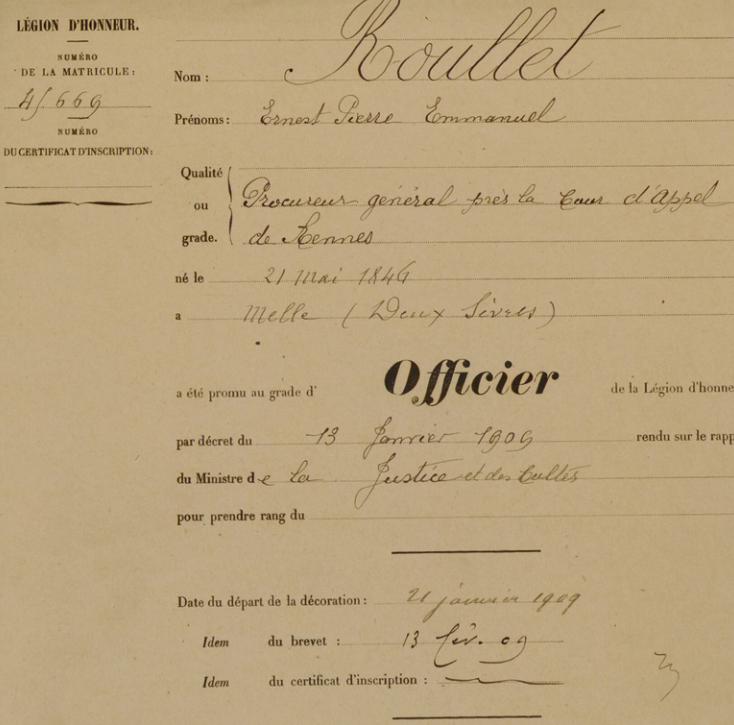 LÉGION D'HONNEUR.
NUMÉRO
DE LA MATRICULE:
45669
NUMÉRO
DU CERTIFICAT D'INSCRIPTION:
Nom : Roullet
Prénoms : Ernest Pierre Emmanuel
Qualité
ou Procureur général près la Cour d'Appel
grade. de Rennes
né le 21 Mai 1846
a Melle (Deux Sèvres)
a été promu au grade d' Officier de la Légion d'honne
par décret du 13 Janvier 1909 rendu sur le rapp
du Ministre de la Justice et des Cultes
pour prendre rang du
Date du départ de la décoration : 21 janvier 1909
Idem du brevet : 13 fév. 09
Idem du certificat d'inscription :